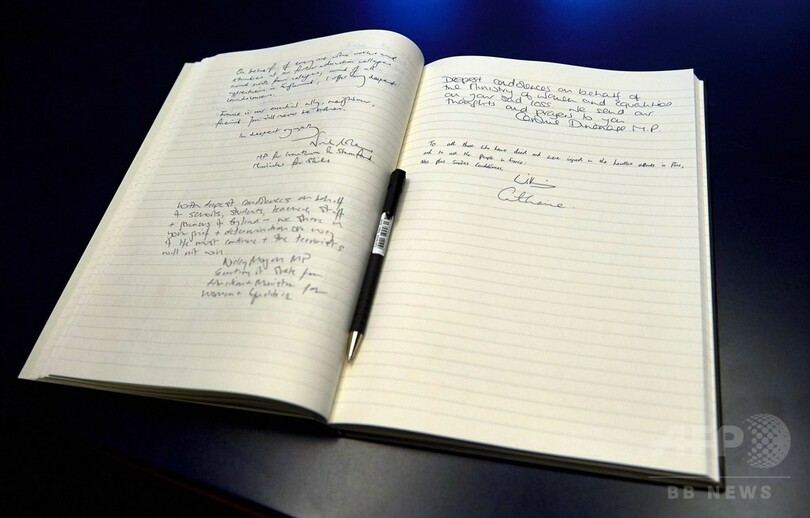 On behalf of everyone who works and
studies at our further education colleges
and sixth form colleges, and of all
apprentices in England, I offer my deepest
condolences.
France is our essential ally, neighbour,
friend. You will never be broken.
In deepest sympathy,
MP for Grantham & Stamford
Minister for Skills
With deepest condolences on behalf
of schools, students, teachers, staff
+ of England – we share in
your grief + determination our way
of life must continue + the terrorists
will not win
Nicky Morgan MP
Secretary of State for
Education + Minister for
Women + Equalities
Deepest condolences on behalf of
the Ministry of Women and Equalities
on your sad loss. We send our
thoughts and prayers to you
Caroline Dinenage M.P.
To all those who have died and were injured in the attacks in Paris,
and to all the people in France.
Our most sincere condolences.
William
Catherine
AFP
BB NEWS